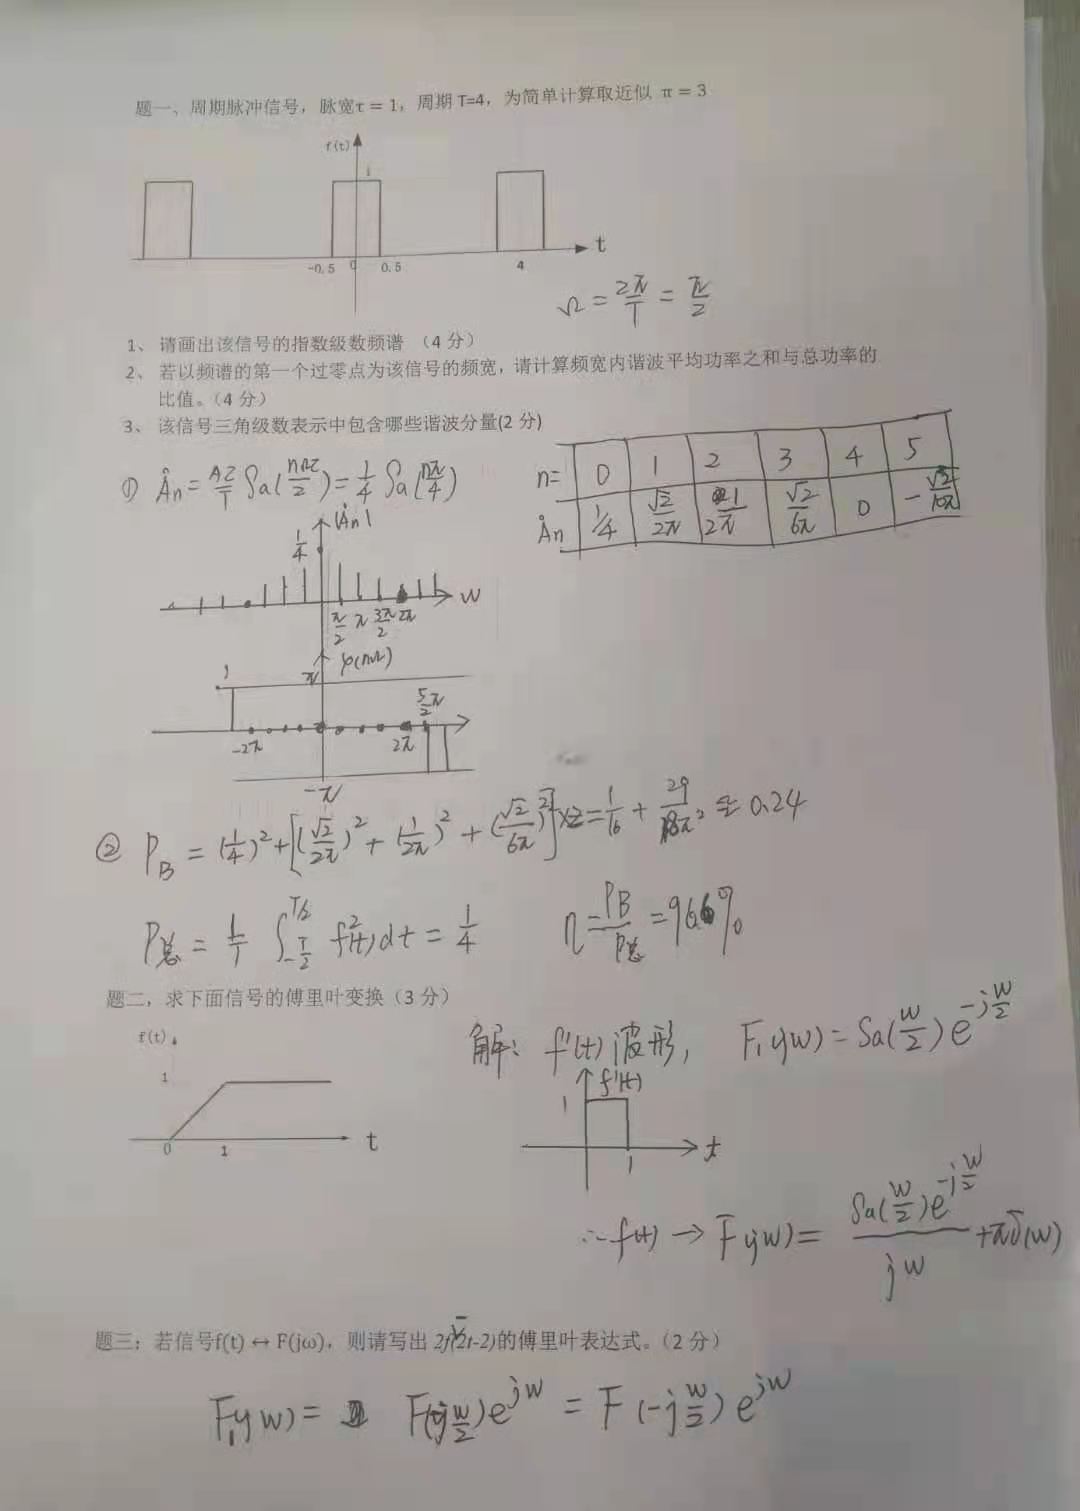 题一、周期脉冲信号，脉宽τ = 1，周期 T=4，为简单计算取近似 π = 3
f(t)
1
-0.5 0 0.5 4 t
Ω = 2π/T = π/2
1、 请画出该信号的指数级数频谱 （4 分）
2、 若以频谱的第一个过零点为该信号的频宽，请计算频宽内谐波平均功率之和与总功率的
比值。（4 分）
3、 该信号三角级数表示中包含哪些谐波分量(2 分)
n= 0 1 2 3 4 5
Ȧn 1/4 √2/2π 1/2π √2/6π 0 -√2/10π
① Ȧn = Aτ/T Sa(nΩτ/2) = 1/4 Sa(nπ/4)
|Ȧn|
1/4
π/2 π 3π/2 2π w
φ(nΩ)
π
5/2π
-2π 2π
-π
② P_B = (1/4)² + [(√2/2π)² + (1/2π)² + (√2/6π)²]×2 = 1/16 + 29/18π² ≈ 0.24
P总 = 1/T ∫_{-T/2}^{T/2} f²(t)dt = 1/4 η = P_B/P总 = 96.6%
题二，求下面信号的傅里叶变换（3 分）
f(t)
1
0 1 t
解: f'(t) 波形, F₁(jw) = Sa(w/2) e^{-jw/2}
f'(t)
1
1 t
∴ f(t) → F(jw) = Sa(w/2)e^{-jw/2}/jw + πδ(w)
题三：若信号f(t) ↔ F(jω)，则请写出 2f(-2t-2)的傅里叶表达式。（2 分）
F₁(jw) = F(-jw/2) e^{jw} = F(-jw/2) e^{jw}